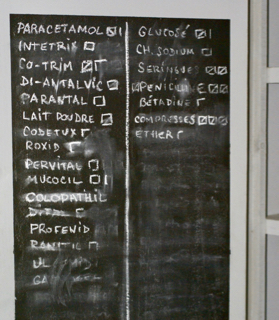 PARACETAMOL
INTETRIX
CO-TRIM
DI-ANTALVIC
PARANTAL
LAIT POUDRE
COBETUX
ROXID
PERVITAL
MUCOCIL
COLOPATHIL
PROFENID
GLUCOSÉ
CH. SODIUM
SERINGUES
PENICILINE
BÉTADINE
COMPRESSES
ETHER